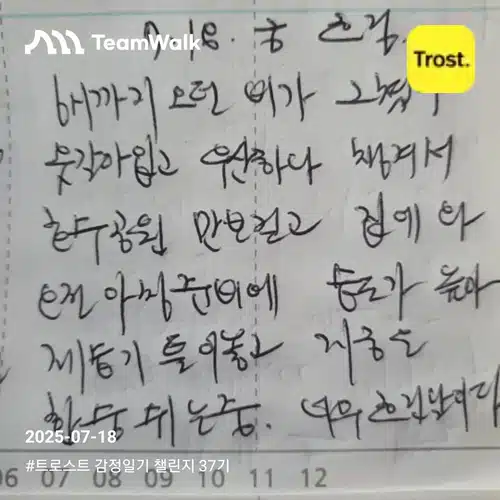 TeamWalk
Trost.
7.18. 금 흐림.
6시까지 오던 비가 그쳤기
옷갈아입고 우산하나 챙겨서
호수공원 만보걷고 집에 와
오전 아침준비에 습도가 높아
제습기 틀어놓고 지금은
쉬는중. 너무 흐린날이다
2025-07-18
#트로스트 감정일기 챌린지 37기
06 07 08 09 10 11 12